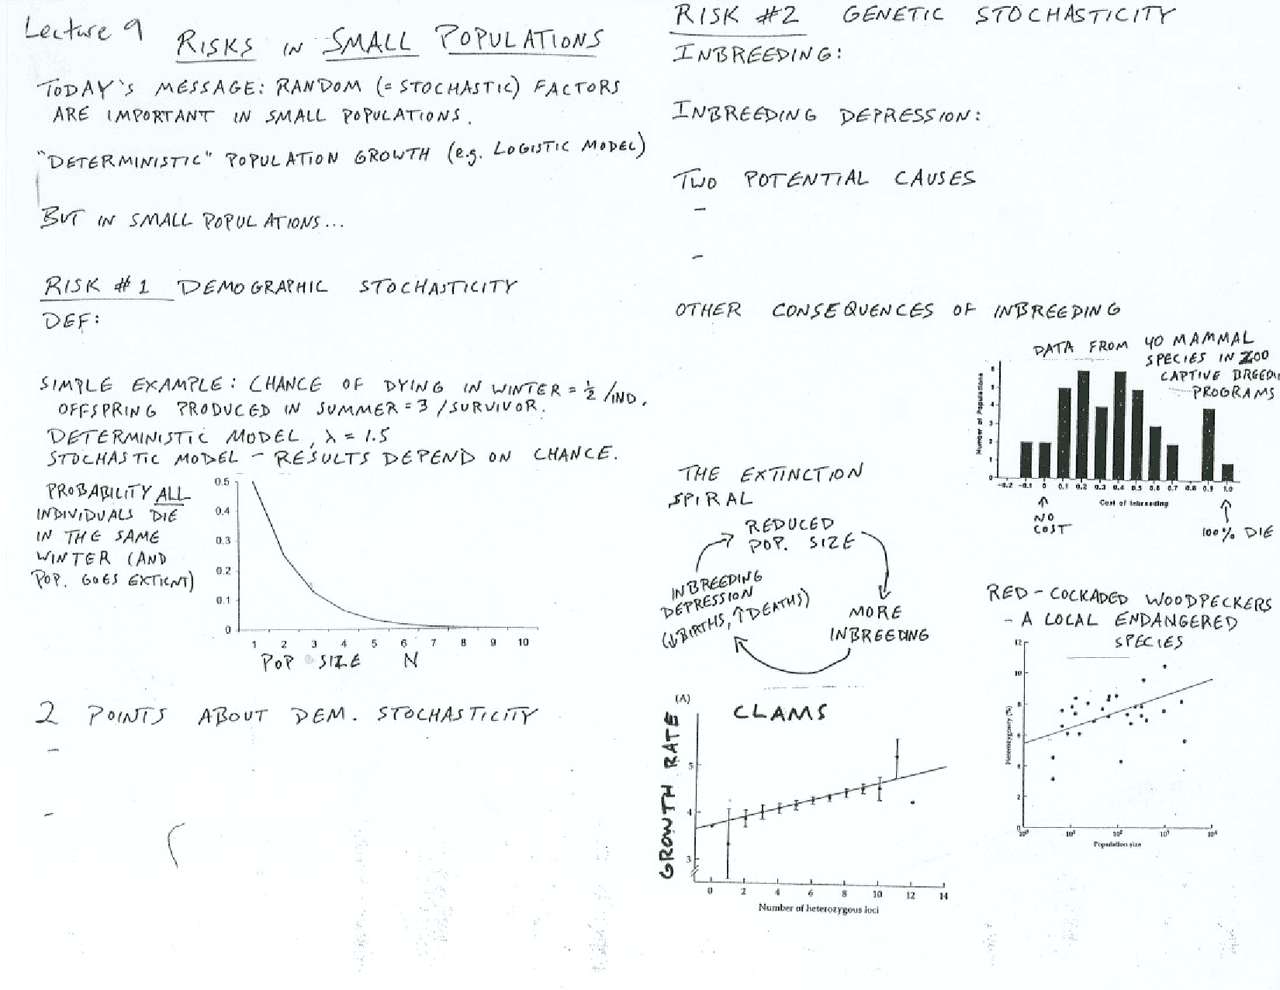 Lecture 9
RISKS IN SMALL POPULATIONS
TODAY'S MESSAGE: RANDOM (= STOCHASTIC) FACTORS
ARE IMPORTANT IN SMALL POPULATIONS.
"DETERMINISTIC" POPULATION GROWTH (e.g. LOGISTIC MODEL)
BUT IN SMALL POPULATIONS...
RISK #1 DEMOGRAPHIC STOCHASTICITY
DEF:
SIMPLE EXAMPLE: CHANCE OF DYING IN WINTER = ½ /IND.
OFFSPRING PRODUCED IN SUMMER = 3 /SURVIVOR.
DETERMINISTIC MODEL, λ = 1.5
STOCHASTIC MODEL - RESULTS DEPEND ON CHANCE.
PROBABILITY ALL
INDIVIDUALS DIE
IN THE SAME
WINTER (AND
POP. GOES EXTICNT)
0.5
0.4
0.3
0.2
0.1
0
1 2 3 4 5 6 7 8 9 10
POP SIZE N
2 POINTS ABOUT DEM. STOCHASTICITY
-
-
RISK #2 GENETIC STOCHASTICITY
INBREEDING:
INBREEDING DEPRESSION:
TWO POTENTIAL CAUSES
-
-
OTHER CONSEQUENCES OF INBREEDING
DATA FROM 40 MAMMAL
SPECIES IN ZOO
CAPTIVE BREEDI
PROGRAMS
Number of Populations
6
5
4
3
2
1
0
-0.2 -0.1 0 0.1 0.2 0.3 0.4 0.5 0.6 0.7 0.8 0.9 1.0
Cost of Inbreeding
NO
COST
100% DIE
THE EXTINCTION
SPIRAL
REDUCED
POP. SIZE
MORE
INBREEDING
INBREEDING
DEPRESSION
(↓BIRTHS, ↑DEATHS)
RED-COCKADED WOODPECKERS
- A LOCAL ENDANGERED
SPECIES
12
10
8
6
4
2
0
Heterozygosity (%)
10⁰ 10¹ 10² 10³ 10⁴
Population size
(A)
CLAMS
GROWTH RATE
5
4
3
0 2 4 6 8 10 12 14
Number of heterozygous loci